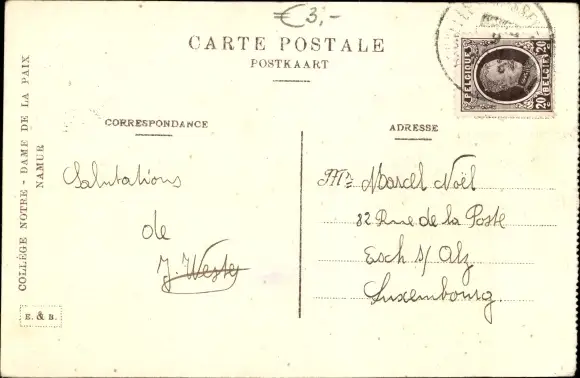 €3,-
CARTE POSTALE
POSTKAART
BELGIQUE
BELGIË
20 c
20 c
COLLÈGE NOTRE - DAME DE LA PAIX
NAMUR
CORRESPONDANCE
Salutations
de
J. Weste
E. & B.
ADRESSE
Mr Marcel Noël
82 Rue de la Poste
Esch s/ Alz
Luxembourg.